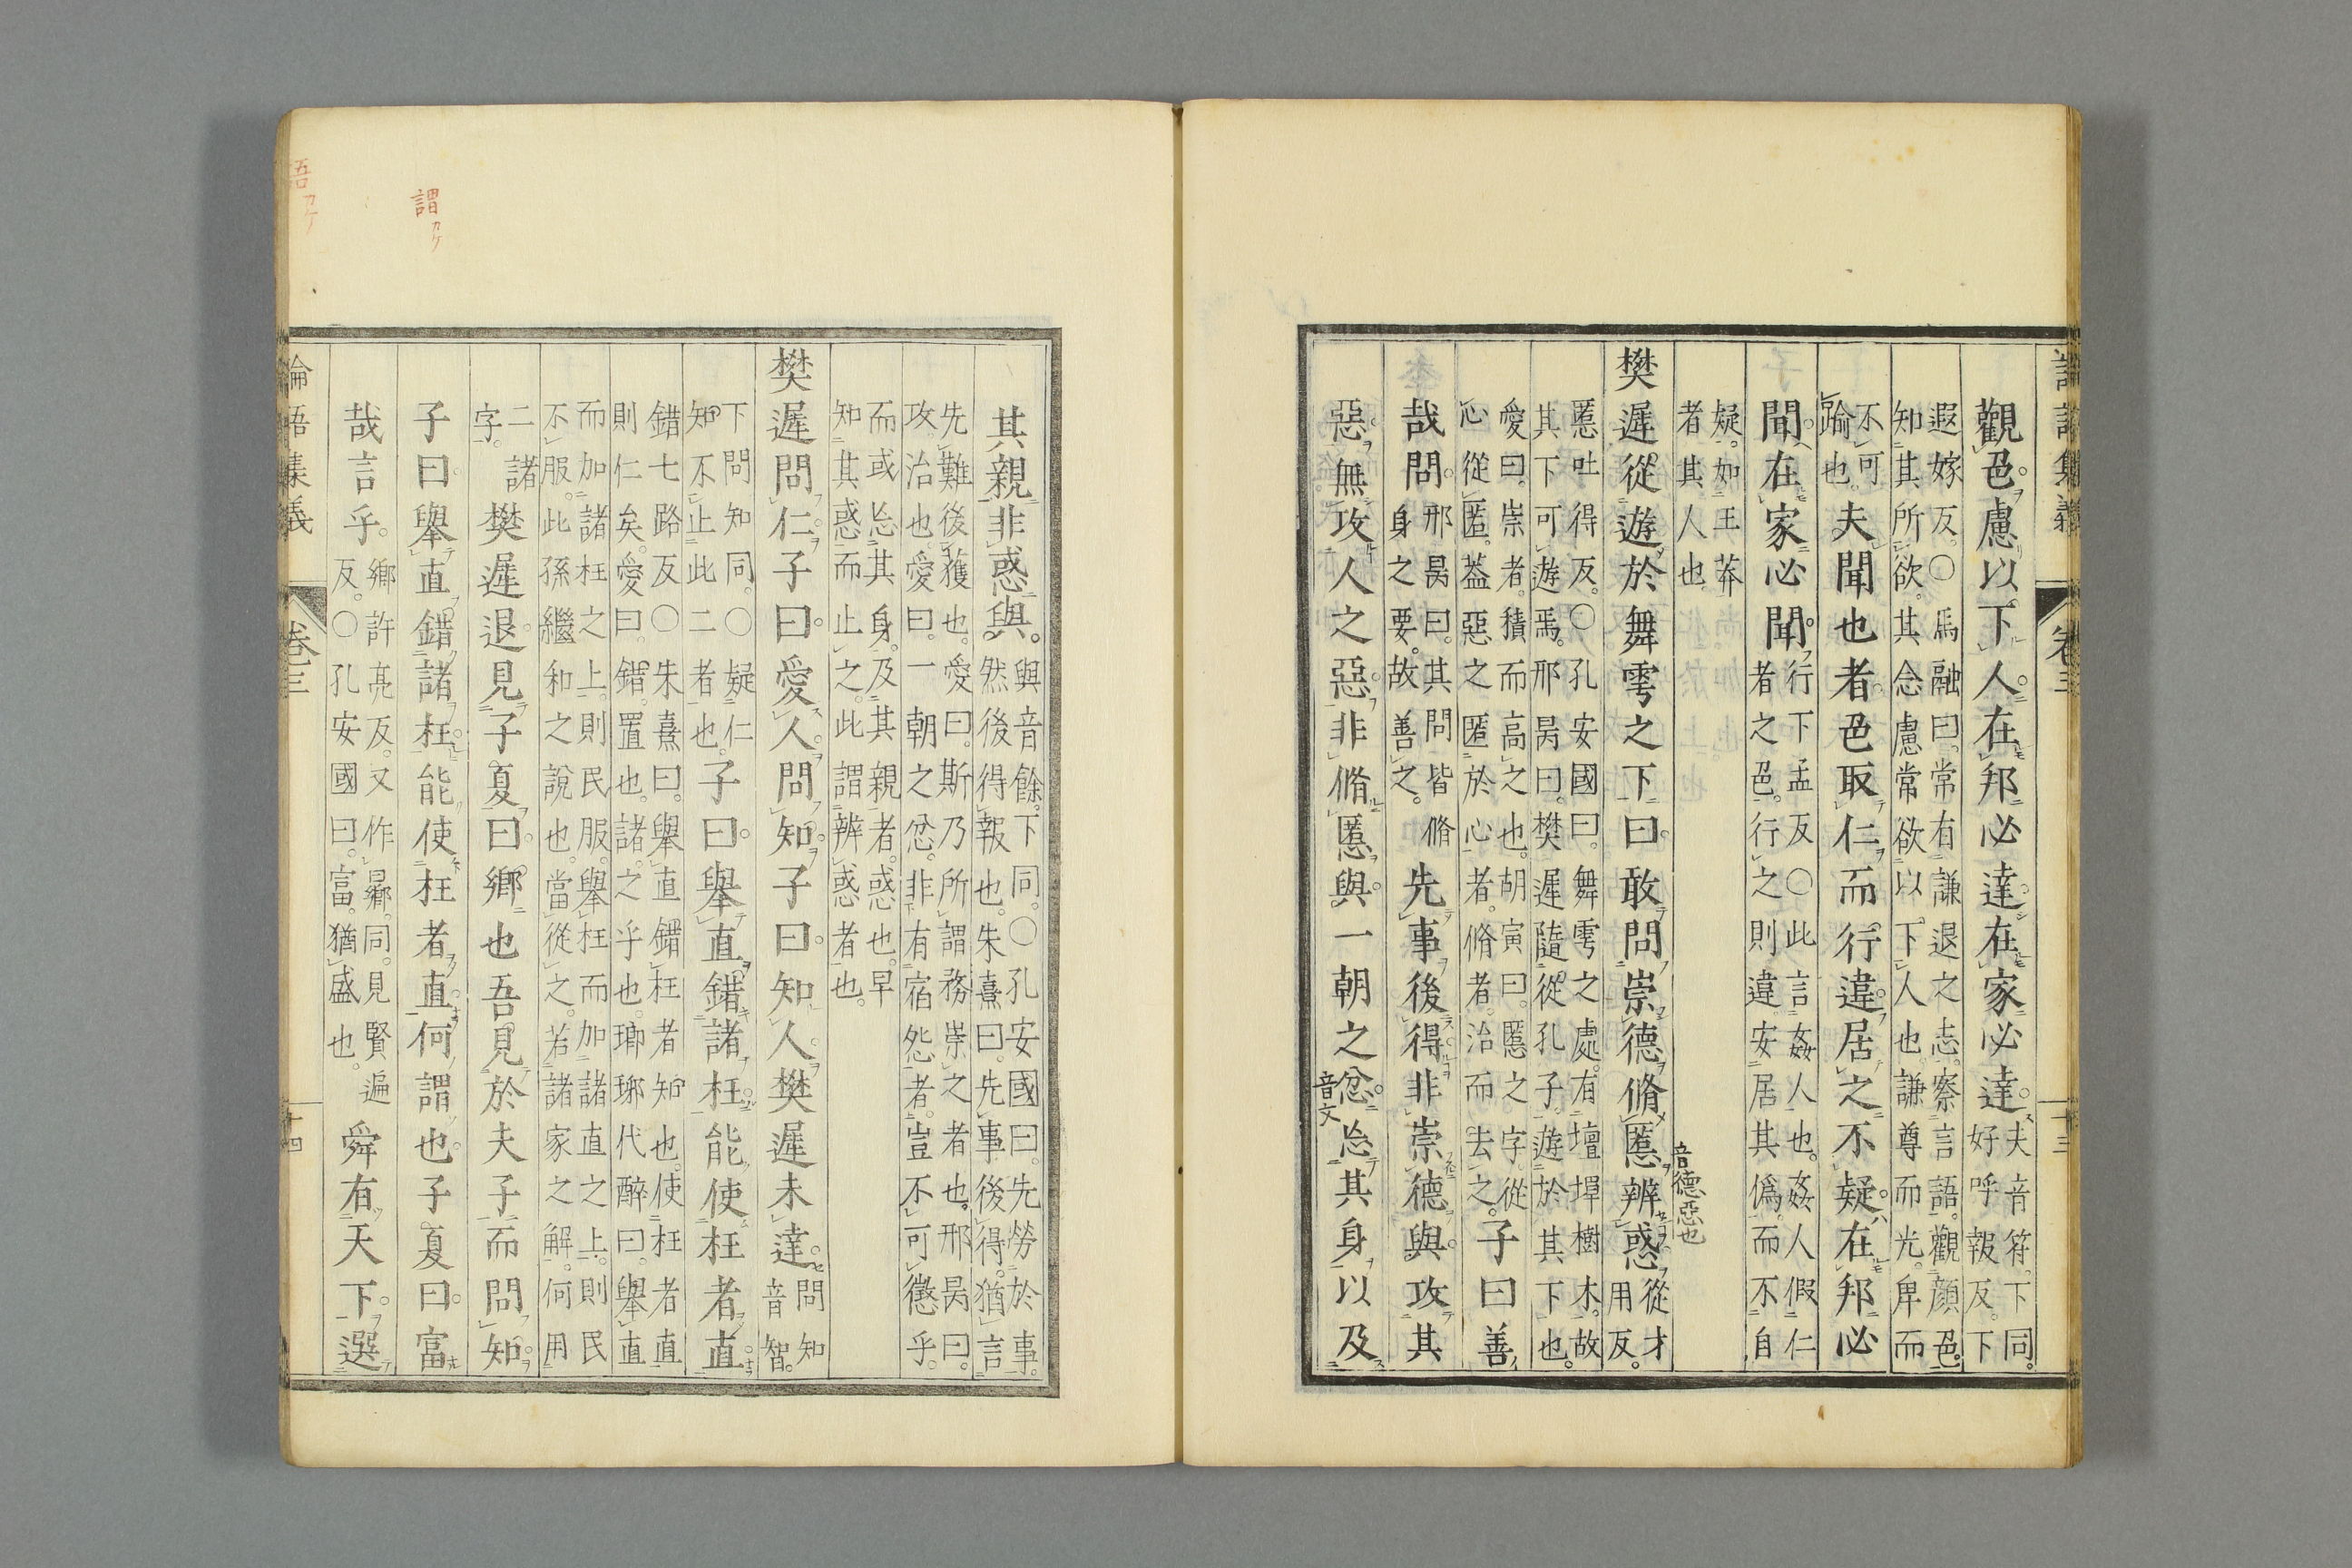 論語集義　卷三　十三
觀色慮以下人在邦必達在家必達夫音符下同
好呼報反下
遐嫁反○馬融曰常有謙退之志察言語觀顏色
知其所欲其念慮常欲以下人也謙尊而光卑而
不可
踰也夫聞也者色取仁而行違居之不疑在邦必
聞在家必聞行下孟反○此言姦人也姦人假仁
者之色行之則違安居其僞而不自
疑如王莽
者其人也
音德惡也
樊遲從遊於舞雩之下曰敢問崇德脩慝辨惑從才
用反
慝吐得反○孔安國曰舞雩之處有壇墠樹木故
其下可遊焉邢昺曰樊遲隨從孔子遊於其下也
愛曰崇者積而高之也胡寅曰慝之字從
心從匿蓋惡之匿於心者脩者治而去之子曰善
哉問邢昺曰其問皆脩
身之要故善之先事後得非崇德與攻其
惡無攻人之惡非脩慝與一朝之忿忘其身以及
音文
其親非惑與與音餘下同○孔安國曰先勞於事
然後得報也朱熹曰先事後得猶言
先難後獲也愛曰斯乃所謂務崇之者也邢昺曰
攻治也愛曰一朝之忿非有宿怨者豈不可懲乎
而或忘其身及其親者惑也早
知其惑而止之此謂辨惑者也
樊遲問仁子曰愛人問知子曰知人樊遲未達問知
音智
下問知同○疑仁
知不止此二者也子曰舉直錯諸枉能使枉者直
錯七路反○朱熹曰舉直錯枉者知也使枉者直
則仁矣愛曰錯置也諸之乎也瑯琊代醉曰舉直
而加諸枉之上則民服舉枉而加諸直之上則民
不服此孫繼和之說也當從之若諸家之解何用
二諸
字樊遲退見子夏曰鄉也吾見於夫子而問知
子曰舉直錯諸枉能使枉者直何謂也子夏曰富
哉言乎鄉許亮反又作曏同見賢遍
反○孔安國曰富猶盛也舜有天下選
論語集義　卷三　十四
謂カケ
吾カケ